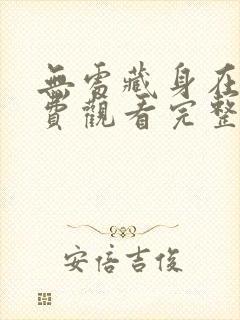 無處藏身在
費觀看完整
安倍吉俊